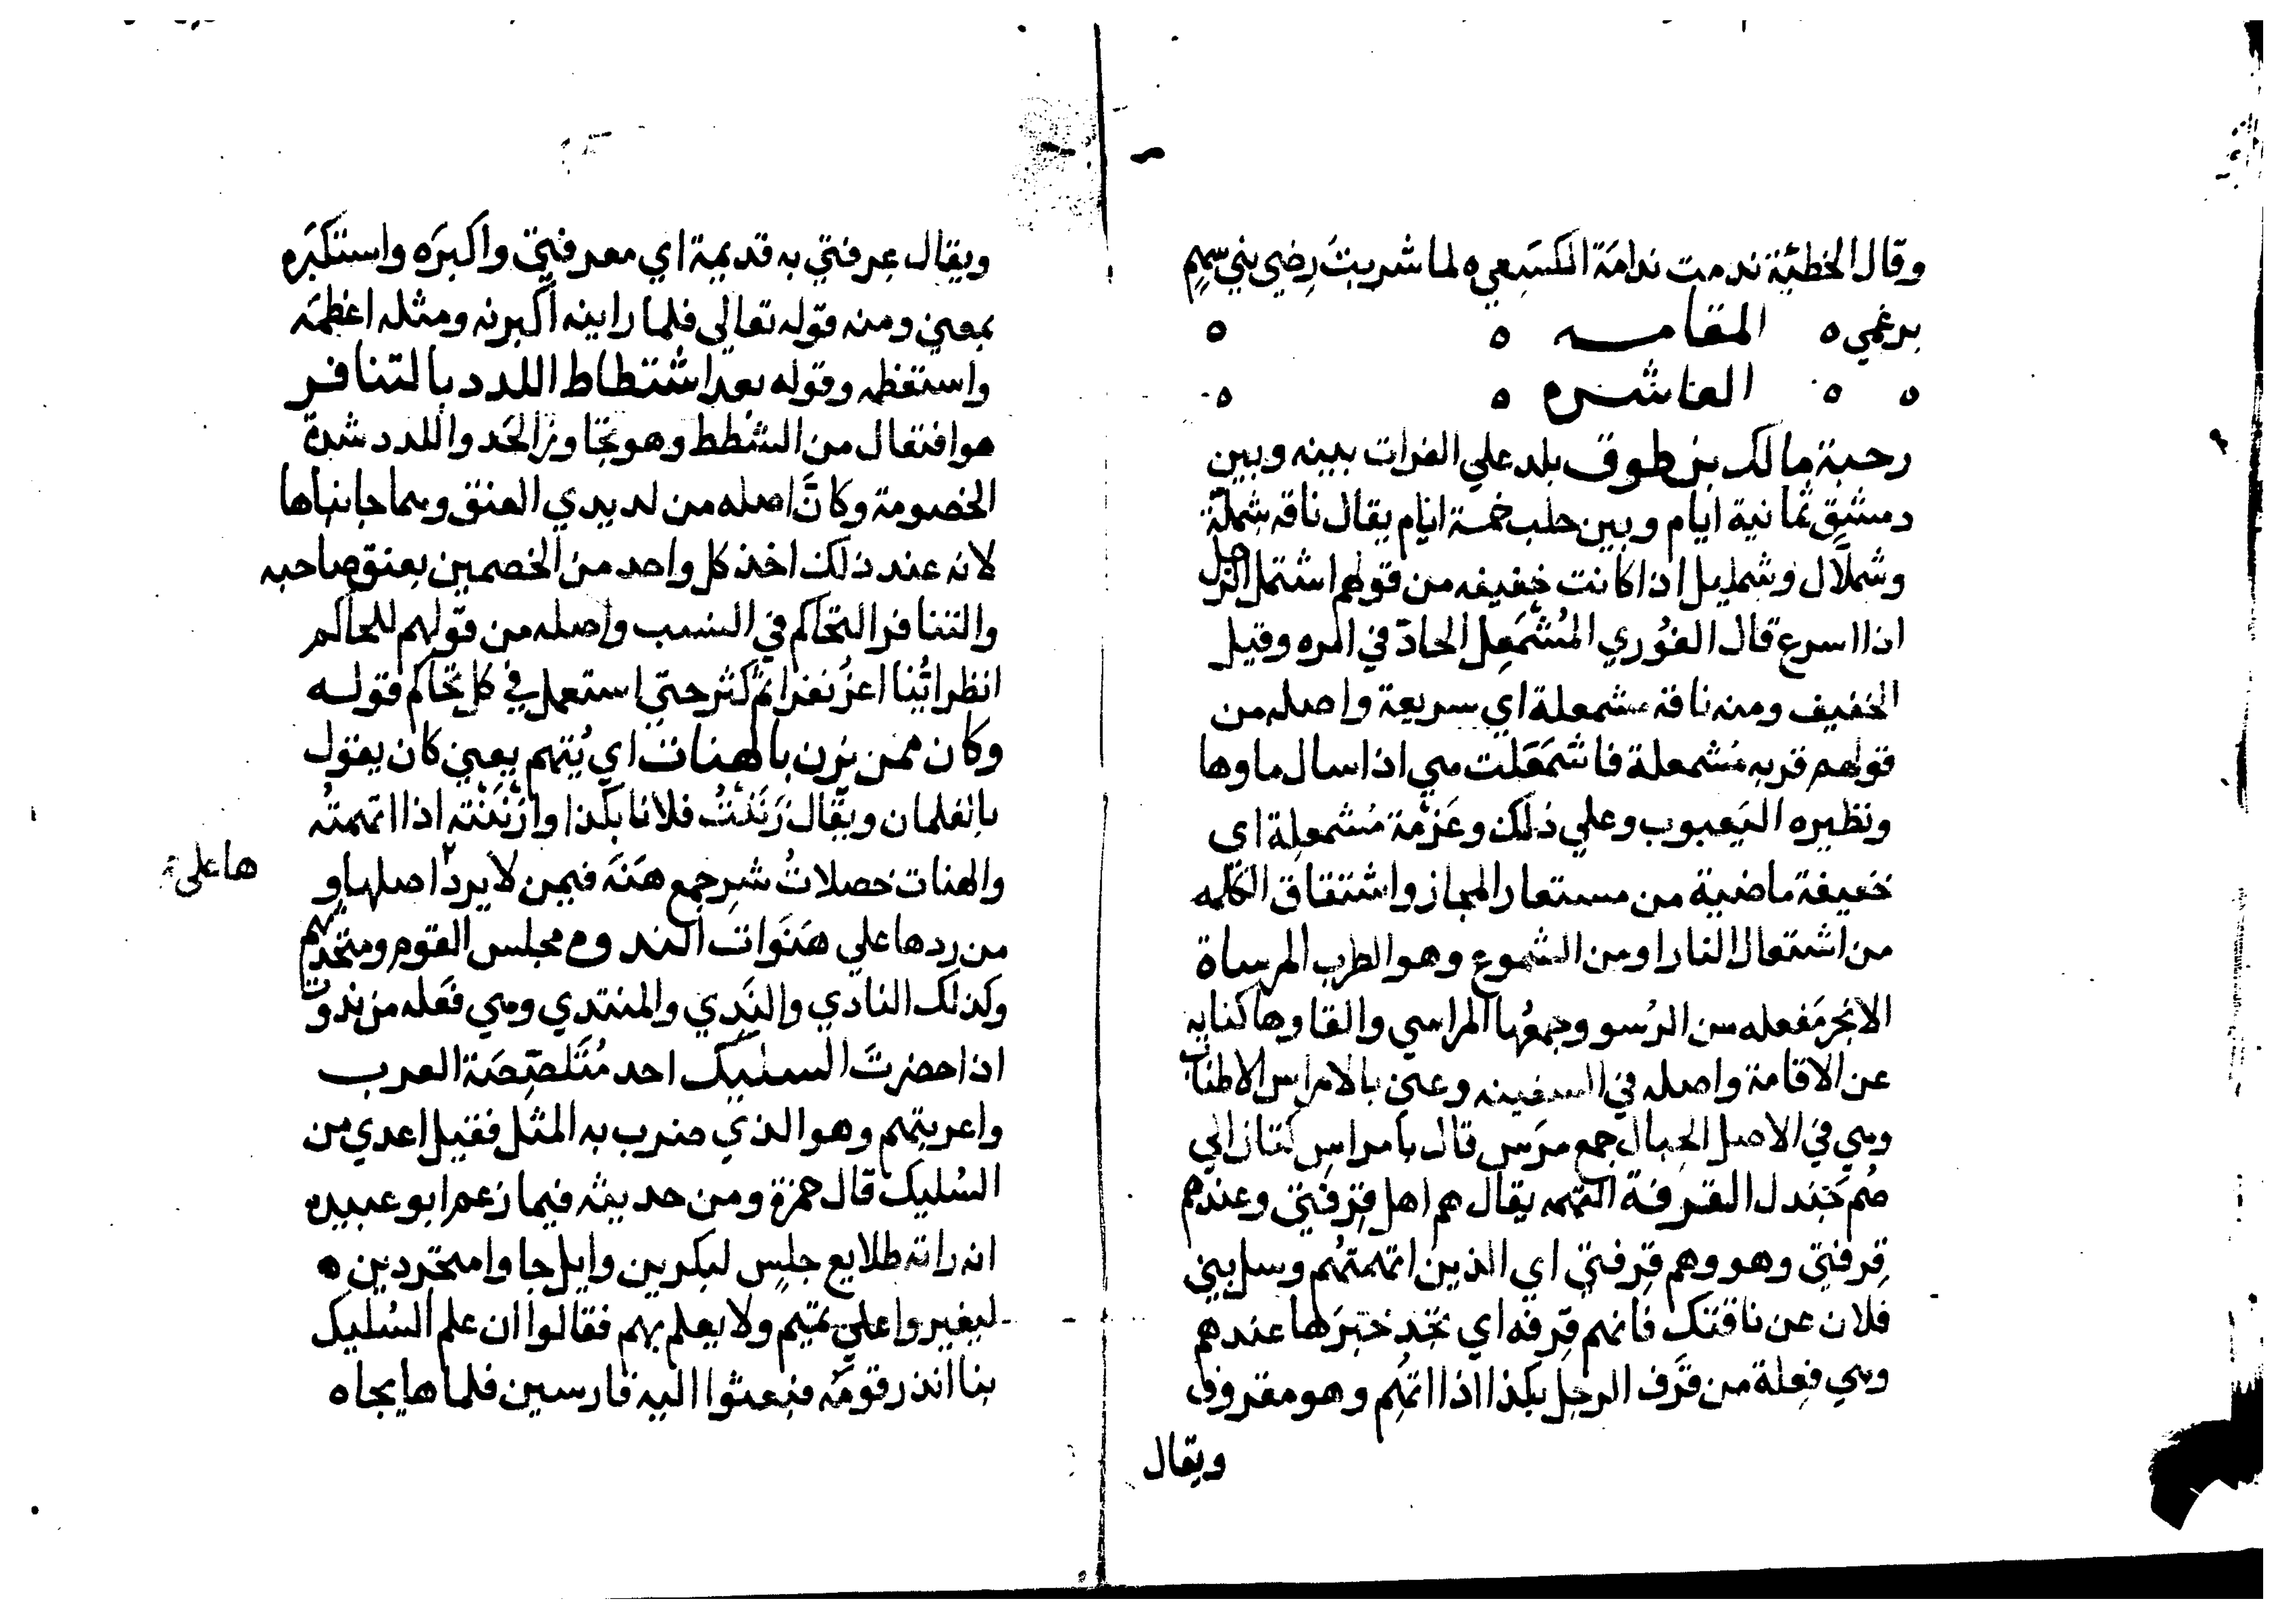 وقال الخطيئة ندمت ندامة الكسعي ه لما شربت رضي بني سهم
برغمي ه المقامـــه ه ه
ه ه العاشـره ه ه
رحبة مالك بن طوق بلد علي الفرات بينه وبين
دمشق ثمانية ايام وبين حلب خمسة ايام يقال ناقه شملة
وشملال وشمليل اذا كانت خفيفه من قولهم اشتمل الرجل
اذا اسرع قال الغوري المشمعل الحاد في امره وقيل
الخفيف ومنه ناقة مشمعلة اي سريعة واصله من
قولهم قربه مشمعلة فاشمعلت هي اذا سال ماوها
ونظيره اليعبوب وعلي ذلك وعزمة مشمعلة اي
خفيفة ماضية من مستعار المجاز واشتقاق الكلمه
من اشتعال النار او من الشموع وهو الطرب المرساة
الانجر مفعله من الرسو وجمعها المراسي والقاوها كنايه
عن الاقامة واصله في السفينه وعني بالامراس الاطناب
وهي في الاصل الحبال جمع مرس قال بامراس كتان الي
صم جندل القرفة التهمه يقال هم اهل قرفتي وعندهم
قرفتي وهو وهم قرفتي اي الذين اتهمتهم وسل بني
فلان عن ناقتك فانهم قرفه اي تجد خبرها عندهم
وهي فعلة من قرف الرجل بكذا اذا اتهم وهو مقروف
ويقال
ويقال عرفتي به قديمة اي معرفتي واكبره واستكبره
بمعني ومنه قوله تعالي فلما راينه اكبرنه ومثله اعظمه
واستعظمه وقوله بعد اشتطاط اللدد بالتنافر
هو افتعال من الشطط وهو تجاوز الحد واللدد شدة
الخصومة وكان اصله من لديدي العنق وهما جانباها
لانه عند ذلك اخذ كل واحد من الخصمين بعنق صاحبه
والتنافر التحاكم في النسب واصله من قولهم للحاكم
انظر اينا اعز نفرا ثم كثر حتي استعمل في كل تحاكم قولـه
وكان ممن يزن بالهنات اي يتهم يعني كان يقول
بالغلمان ويقال زننت فلانا بكذا وازننته اذا اتهمته
والهنات خصلات شر جمع هنه فيمن لا يرد اصلها و
ها علي
من ردها علي هنوات الندوه مجلس القوم ومتحدثهم
وكذلك النادي والندي والمنتدي وهي فعله من ندوت
اذا حضرت السليك احد متلصصة العرب
واعربتهم وهو الذي ضرب به المثل فقيل اعدي من
السليك قال حمزة ومن حديثه فيما زعم ابو عبيده
انه راته طلايع جليس لبكر بن وايل جاوا متجردين ه
ليغيروا علي تميم ولا يعلم بهم فقالوا ان علم السليك
بنا انذر قومه فبعثوا اليه فارسين فلما هايجاه